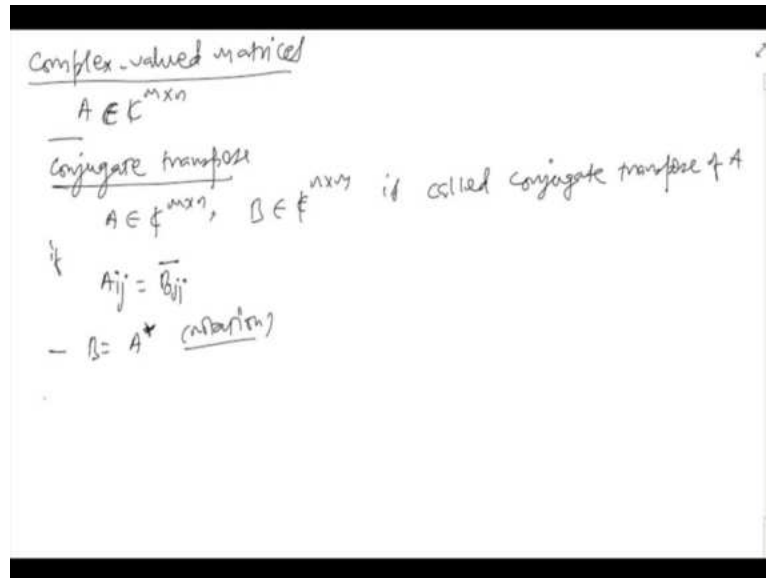 Complex-valued matrices
A ∈ ℂ^{m×n}
Conjugate transpose
A ∈ ℂ^{m×n}, B ∈ ℂ^{n×m} is called conjugate transpose of A
if
A_{ij} = \overline{B_{ji}}
- B = A* (notation)